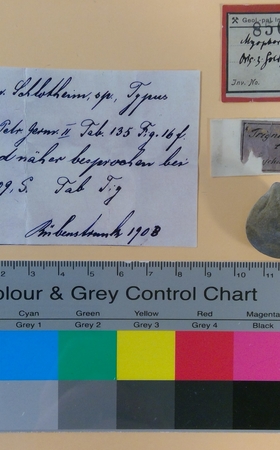 v. Schlotheim, sp., Typus
Petr. Germ. II Tab. 135 Fig. 16 f.
d näher besprochen bei
09, S. Tab T. g
Rübenstrunk 1908
Geol-pal. In
850
Myophor
Orb. z. Gold
Inv. No.
Trigon
2 3 4 5 6 7 8 9 10 11
olour & Grey Control Chart
Cyan Green Yellow Red Magenta
Grey 1 Grey 2 Grey 3 Grey 4 Black